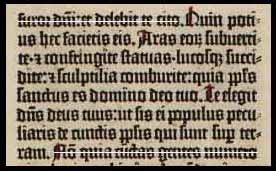 furor dñi: et delebit te cito. Quin poti-
us hec facietis eis. Aras eoꝝ subverti-
te·⁊ confringite statuas· lucosqꝫ succi-
dite: ⁊ sculptilia comburite: quia ppl̃s
sanctus es domino deo tuo. Te elegit
dñs deus tuus: ut sis ei populus pecu-
liaris de cunctis pplis qui sunt suꝑ ter-
ram. Nõ quia cũctas gentes numero